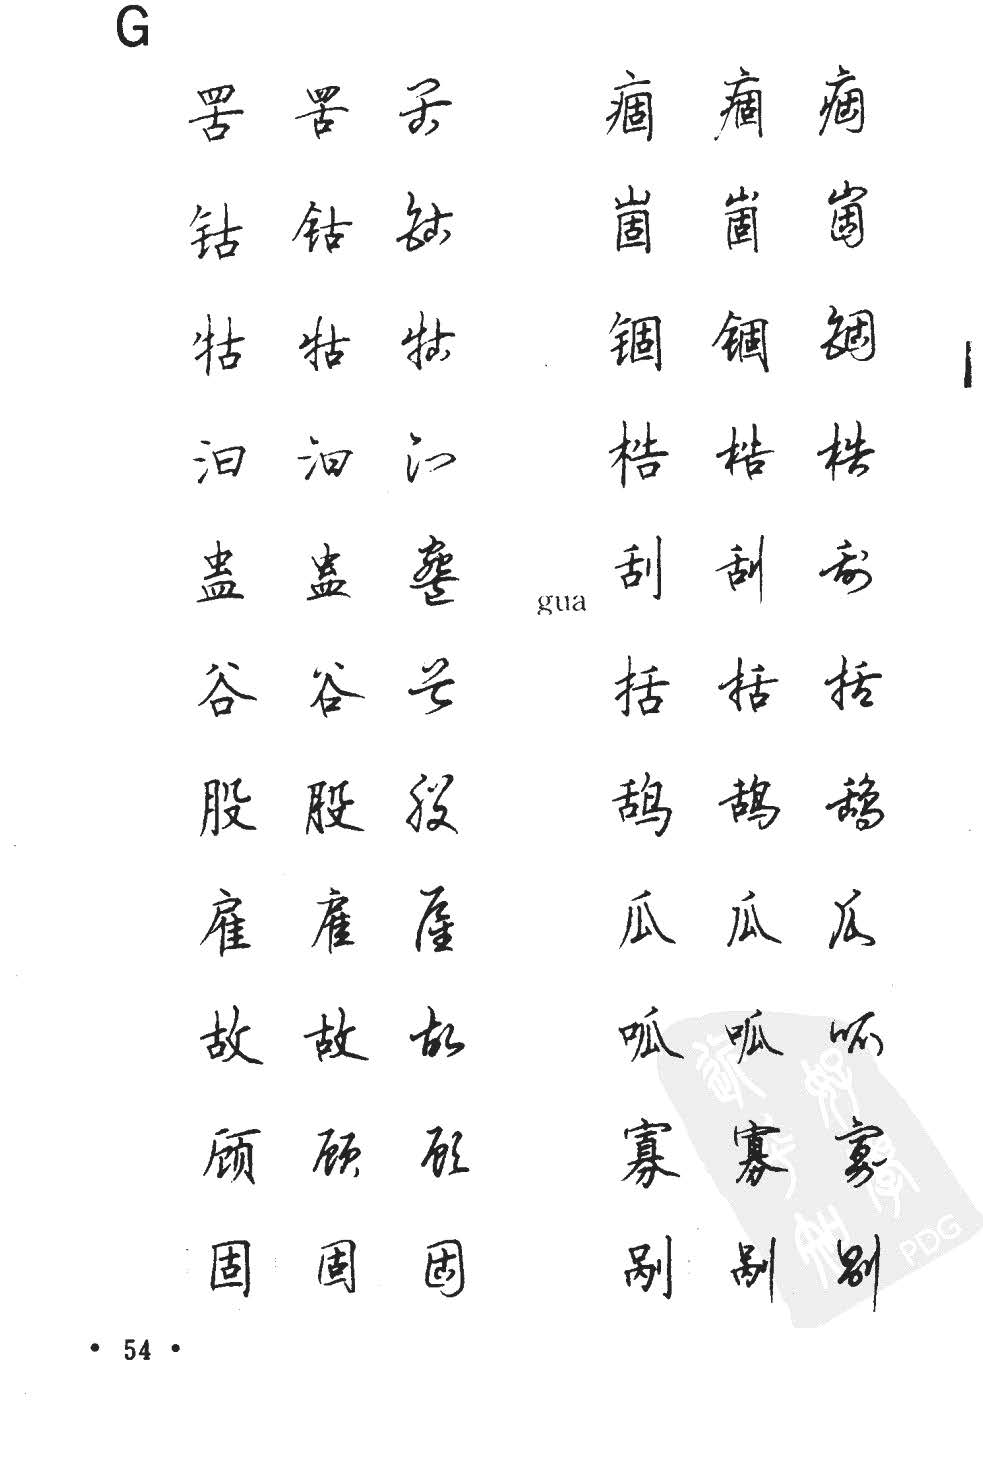 G
罟 罟 罟
钴 钴 钴
牯 牯 牯
汩 汩 汩
蛊 蛊 蛊
谷 谷 谷
股 股 股
雇 雇 雇
故 故 故
顾 顾 顾
固 固 固
痼 痼 痼
崮 崮 崮
锢 锢 锢
梏 梏 梏
gua
刮 刮 刮
括 括 括
鸹 鸹 鸹
瓜 瓜 瓜
呱 呱 呱
寡 寡 寡
剐 剐 剐
PDG
• 54 •